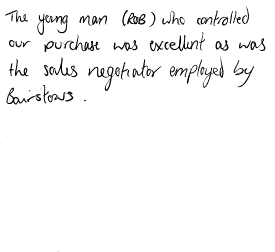 The young man (ROB) who controlled
our purchase was excellent as was
the sales negotiator employed by
Bairstows.